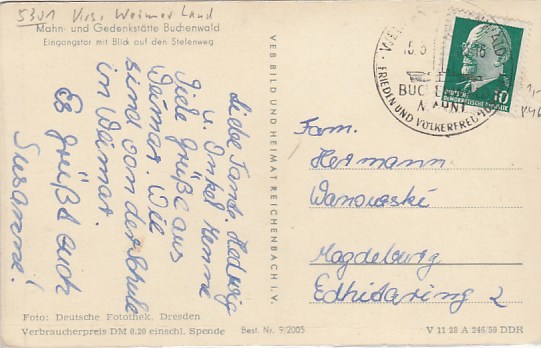 5301 Krs. Weimar Land
Mahn- und Gedenkstätte Buchenwald
Eingangstor mit Blick auf den Stelenweg
Liebe Tante Hedwig
u. Onkel Menne
Viele Grüße aus
Weimar. Wir
sind von der Schule
in Weimar.
Es grüßt euch
Susanne!
Foto: Deutsche Fotothek, Dresden
Verbraucherpreis DM 0.20 einschl. Spende
Best. Nr. 9/2005
VEB BILD UND HEIMAT REICHENBACH I. V.
15.8
BUCHEN
MAHNT
FRIEDEN UND VÖLKERFREU
DEUTSCHE DEMOKRATISCHE REPUBLIK
10
Fam.
Hermann
Wanowski
Magdeburg
2
V 11 28 A 246/59 DDR